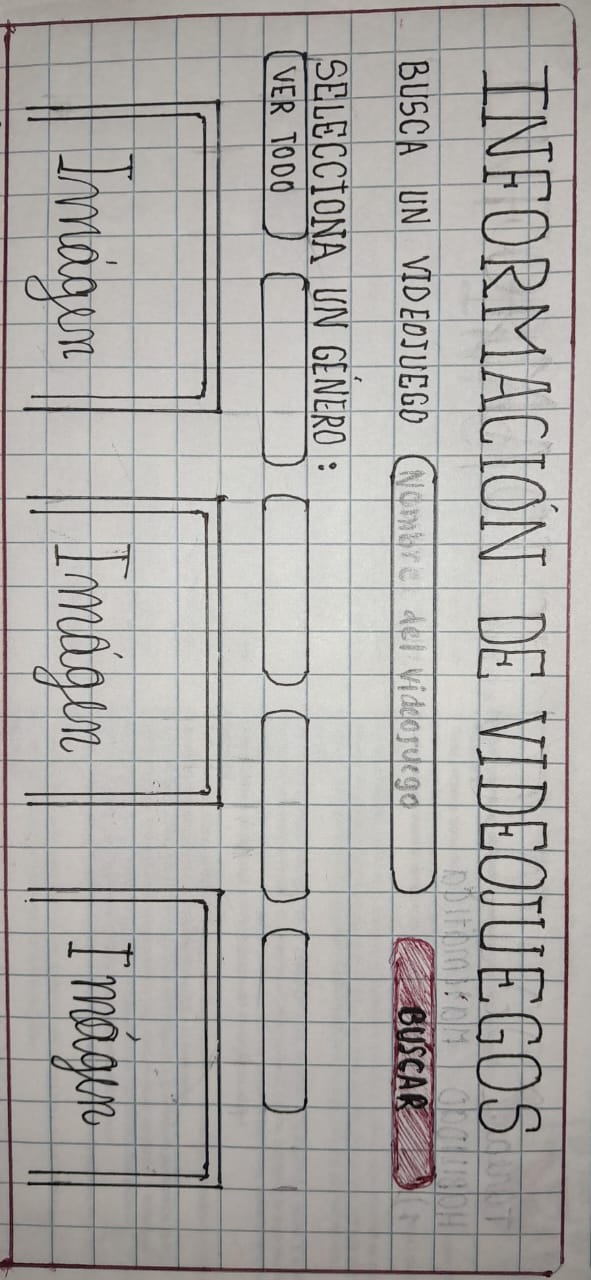 INFORMACIÓN DE VIDEOJUEGOS
BUSCA UN VIDEOJUEGO Nombre del videojuego BUSCAR
SELECCIONA UN GÉNERO:
VER TODO
Imágen Imágen Imágen